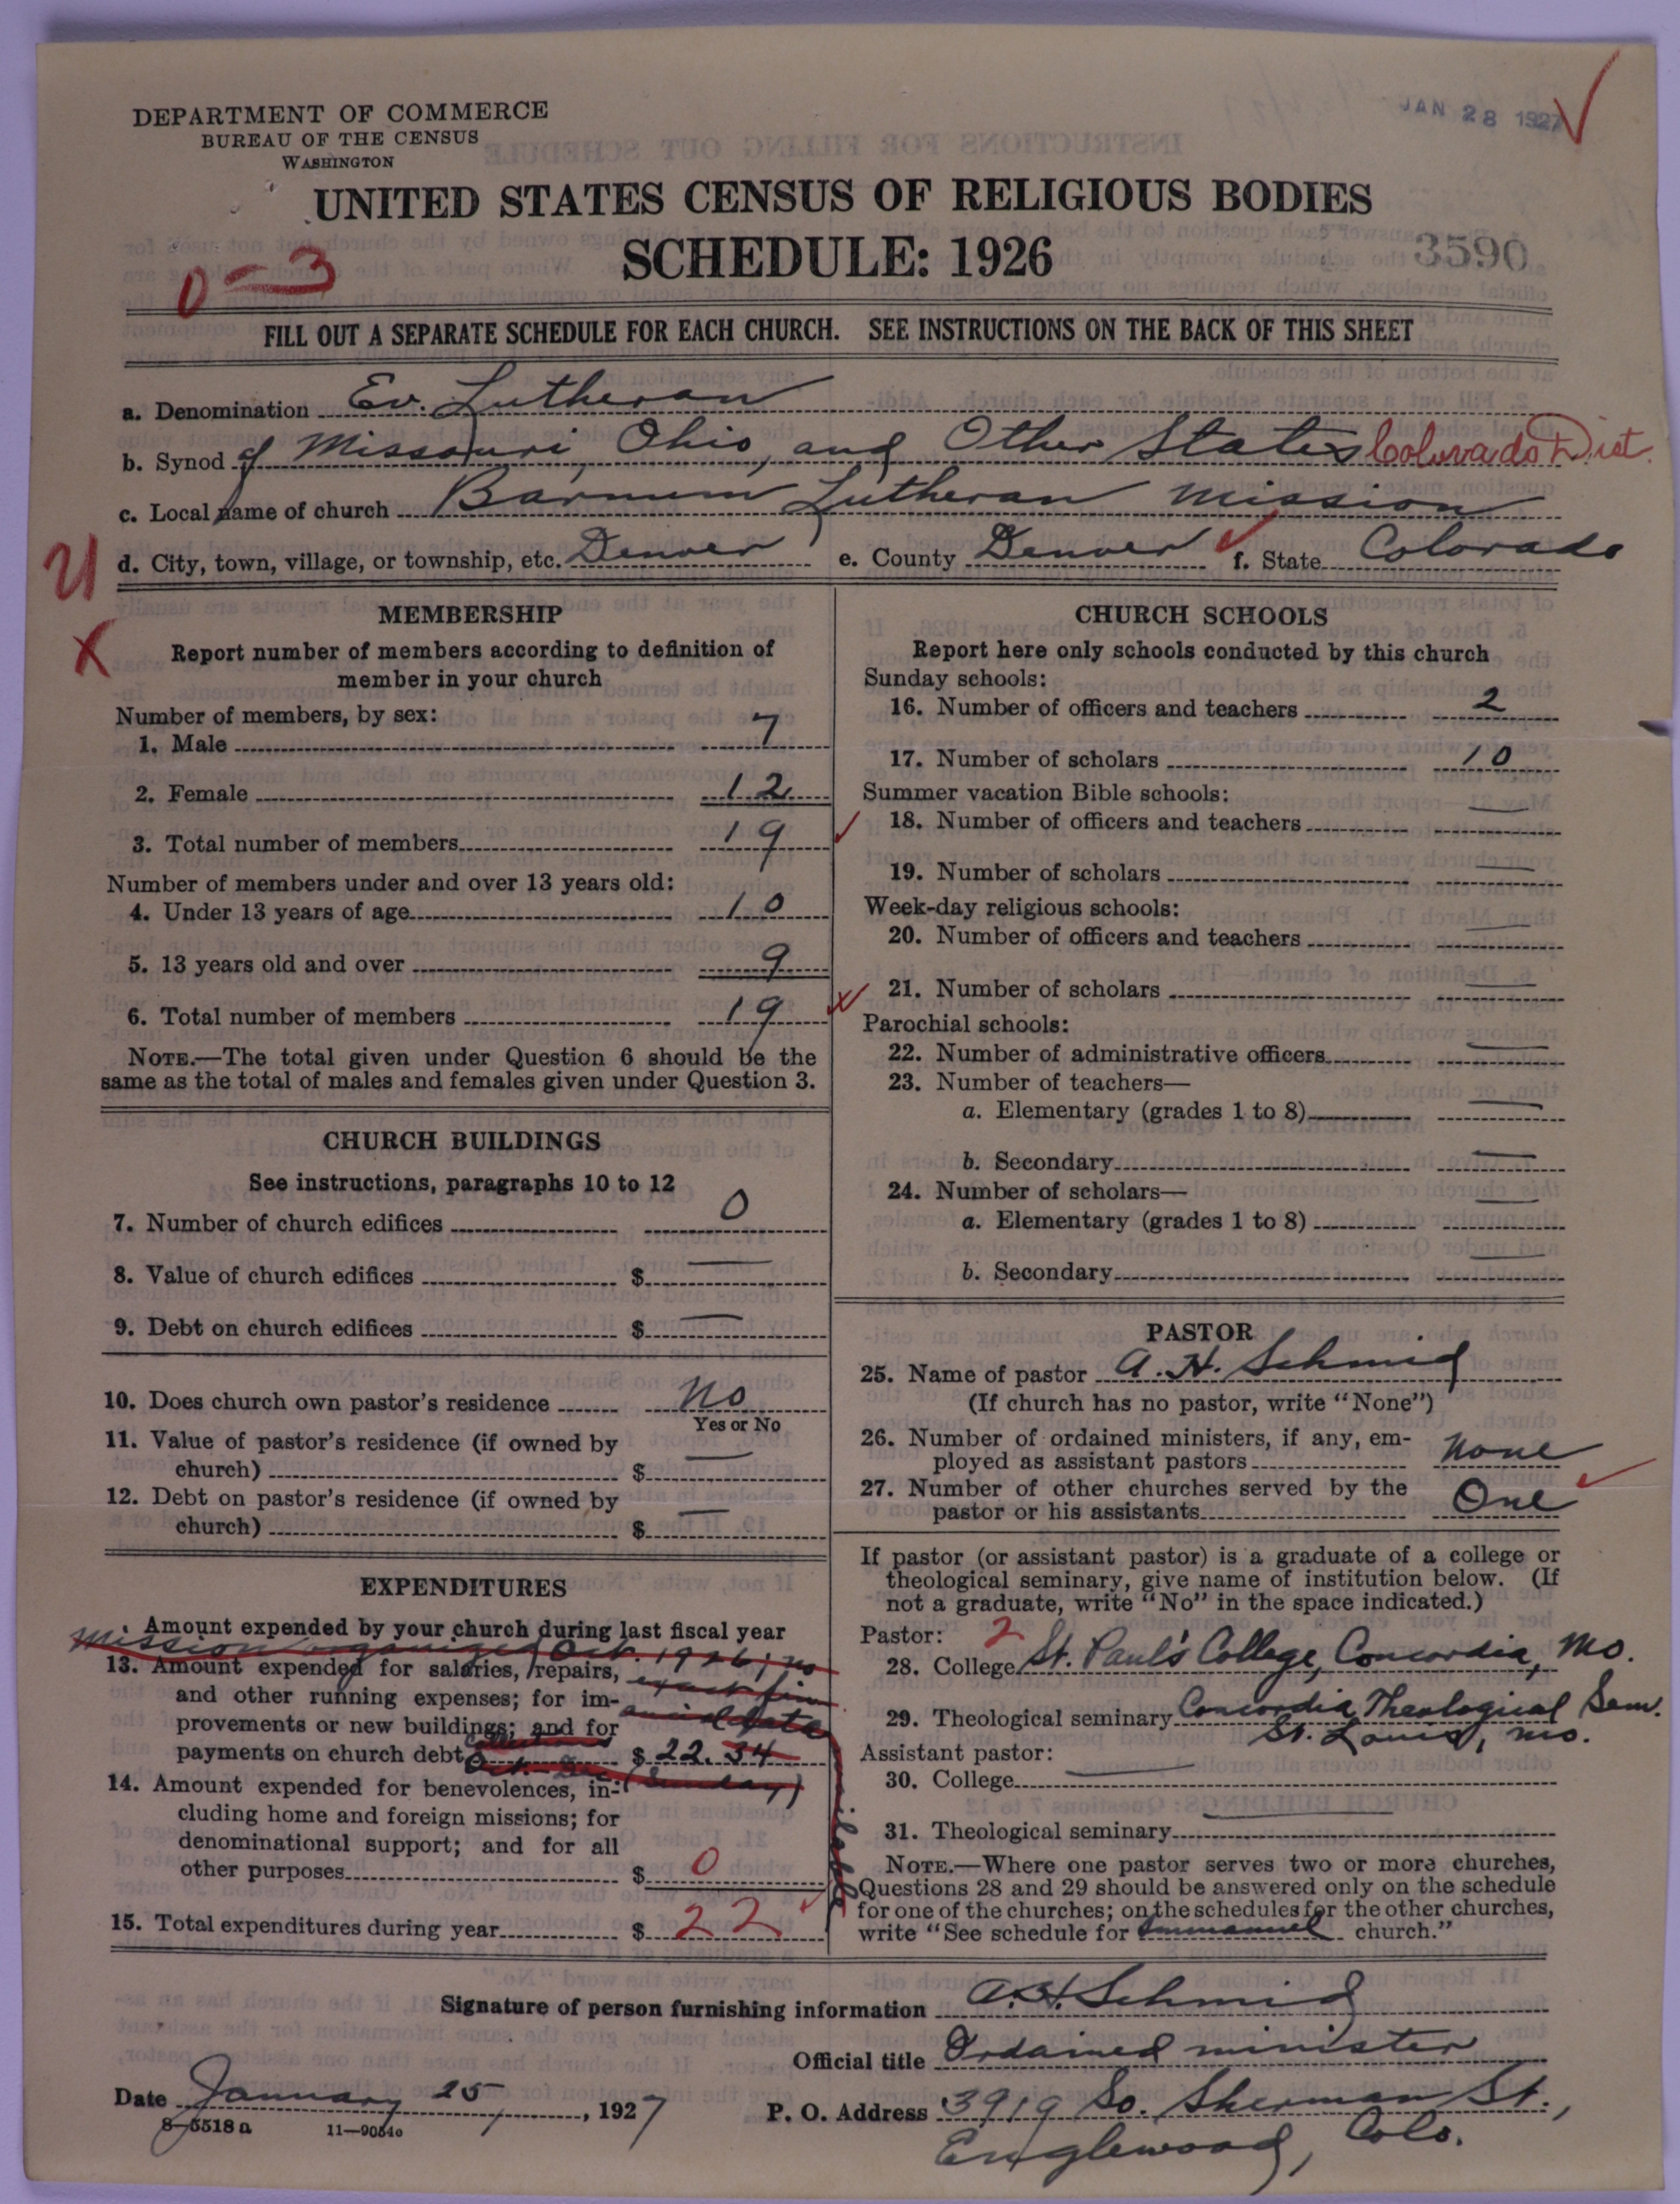 JAN 28 1927
DEPARTMENT OF COMMERCE
BUREAU OF THE CENSUS
WASHINGTON
UNITED STATES CENSUS OF RELIGIOUS BODIES
SCHEDULE: 1926
3590
0-3
FILL OUT A SEPARATE SCHEDULE FOR EACH CHURCH. SEE INSTRUCTIONS ON THE BACK OF THIS SHEET
a. Denomination Ev. Lutheran
b. Synod of Missouri, Ohio, and Other States Colorado Dist.
c. Local name of church Barnum Lutheran Mission
d. City, town, village, or township, etc. Denver e. County Denver f. State Colorado
U
X
MEMBERSHIP
Report number of members according to definition of
member in your church
Number of members, by sex:
1. Male 7
2. Female 12
3. Total number of members 19
Number of members under and over 13 years old:
4. Under 13 years of age 10
5. 13 years old and over 9
6. Total number of members 19
NOTE.—The total given under Question 6 should be the
same as the total of males and females given under Question 3.
CHURCH BUILDINGS
See instructions, paragraphs 10 to 12
7. Number of church edifices 0
8. Value of church edifices $ —
9. Debt on church edifices $ —
10. Does church own pastor's residence No
Yes or No
11. Value of pastor's residence (if owned by
church) $ —
12. Debt on pastor's residence (if owned by
church) $ —
EXPENDITURES
Amount expended by your church during last fiscal year
Mission organized Oct. 1926; no
13. Amount expended for salaries, repairs,
and other running expenses; for im-
provements or new buildings; and for
payments on church debt $ 22.34
Oct. - Dec. (Sunday)
14. Amount expended for benevolences, in-
cluding home and foreign missions; for
denominational support; and for all
other purposes $ 0
15. Total expenditures during year $ 22
CHURCH SCHOOLS
Report here only schools conducted by this church
Sunday schools:
16. Number of officers and teachers 2
17. Number of scholars 10
Summer vacation Bible schools:
18. Number of officers and teachers —
19. Number of scholars —
Week-day religious schools:
20. Number of officers and teachers —
21. Number of scholars —
Parochial schools:
22. Number of administrative officers —
23. Number of teachers—
a. Elementary (grades 1 to 8) —
b. Secondary —
24. Number of scholars—
a. Elementary (grades 1 to 8) —
b. Secondary —
PASTOR
25. Name of pastor A. H. Schmid
(If church has no pastor, write "None")
26. Number of ordained ministers, if any, em-
ployed as assistant pastors None
27. Number of other churches served by the
pastor or his assistants One
If pastor (or assistant pastor) is a graduate of a college or
theological seminary, give name of institution below. (If
not a graduate, write "No" in the space indicated.)
Pastor: 2
28. College St. Paul's College, Concordia, Mo.
29. Theological seminary Concordia Theological Sem.
St. Louis, Mo.
Assistant pastor:
30. College —
31. Theological seminary —
NOTE.—Where one pastor serves two or more churches,
Questions 28 and 29 should be answered only on the schedule
for one of the churches; on the schedules for the other churches,
write "See schedule for Immanuel church."
Signature of person furnishing information A. H. Schmid
Official title Ordained minister
Date January 25, 1927
P. O. Address 3919 So. Sherman St.,
Englewood, Colo.
8-5518a 11—9054a